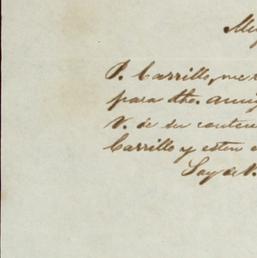 P. Carrillo, me r
para dho. amig
V. de su conten
Carrillo y esten
Soy de V.